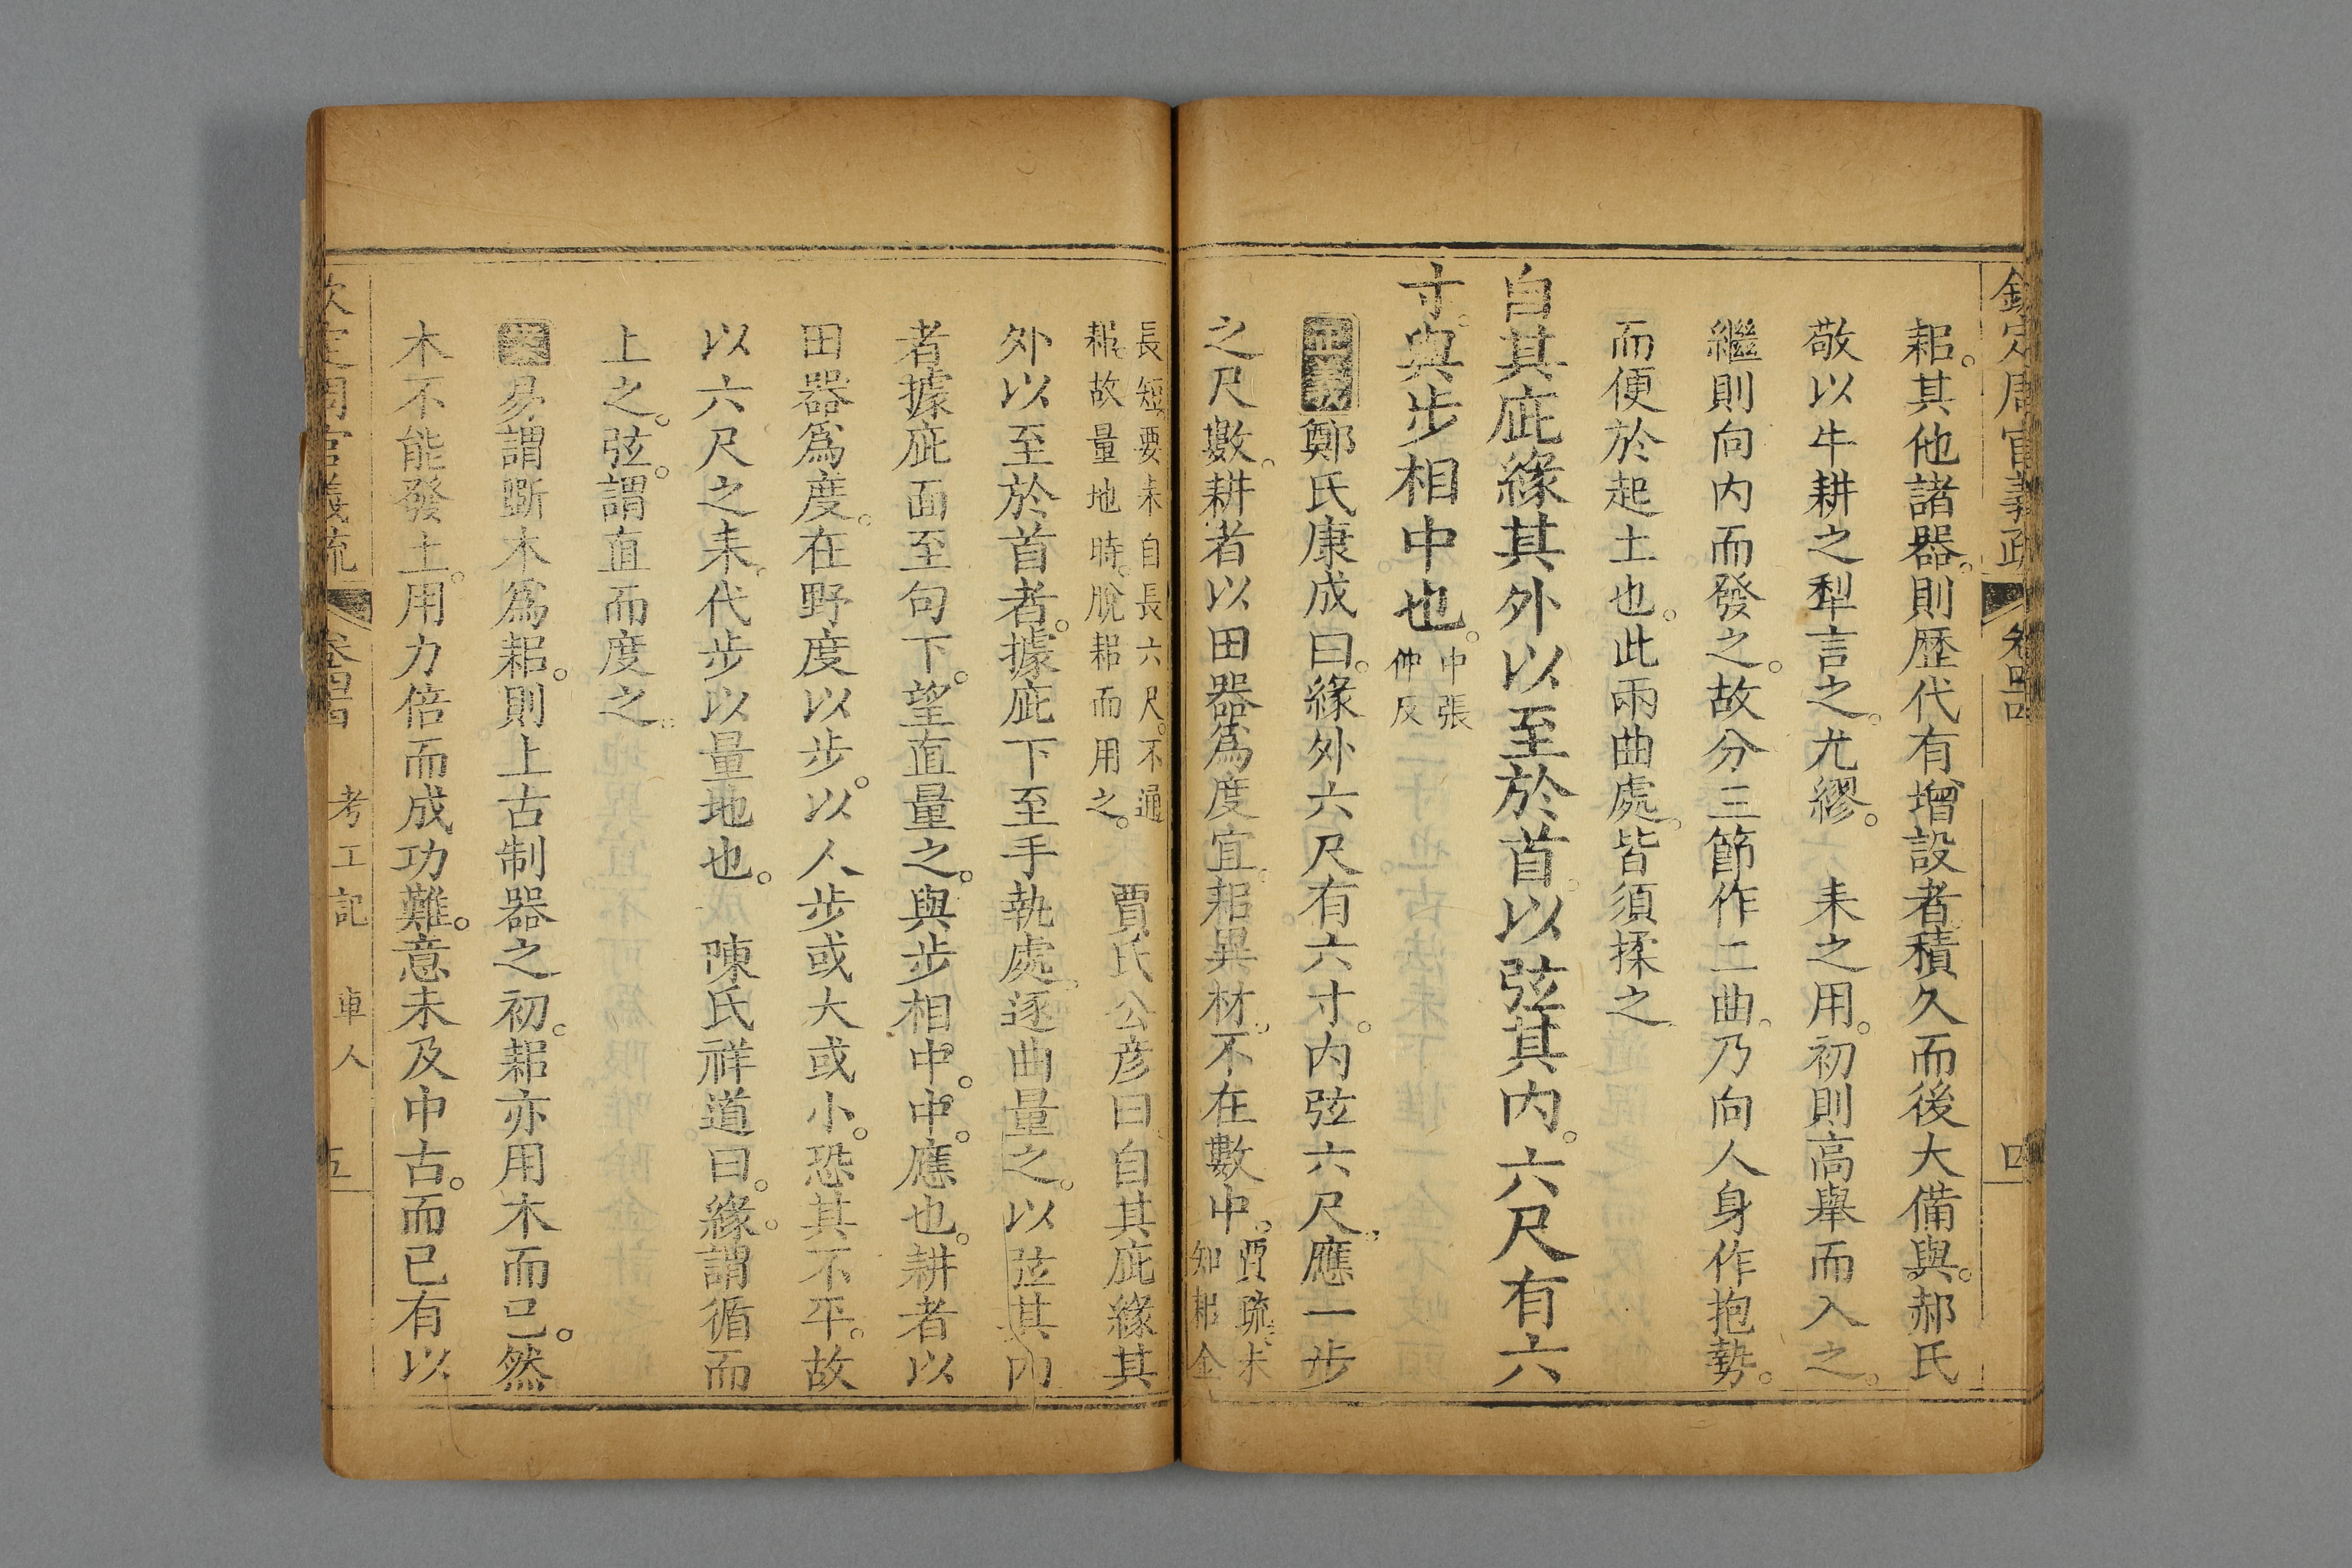 欽定周官義疏 卷四十四 四
耜其他諸器則歷代有增設者積久而後大備與郝氏
敬以牛耕之犁言之尤繆 耒之用初則高舉而入之
繼則向内而發之故分三節作二曲乃向人身作抱勢
而便於起土也此兩曲處皆須揉之
自其庛緣其外以至於首以弦其内六尺有六
寸與步相中也中張仲反
正義鄭氏康成曰緣外六尺有六寸内弦六尺應一步
之尺數耕者以田器爲度宜耜異材不在數中賈疏未知耜金
長短要耒自長六尺不通耜故量地時脫耜而用之 賈氏公彦曰自其庛緣其
外以至於首者據庛下至手執處逐曲量之以弦其内
者據庛面至句下望直量之與步相中中應也耕者以
田器爲度在野度以步以人步或大或小恐其不平故
以六尺之耒代步以量地也 陳氏祥道曰緣謂循而
上之弦謂直而度之
易謂斲木爲耜則上古制器之初耜亦用木而已然
木不能發土用力倍而成功難意未及中古而已有以
欽定周官義疏 卷四十四 考工記 車人 五